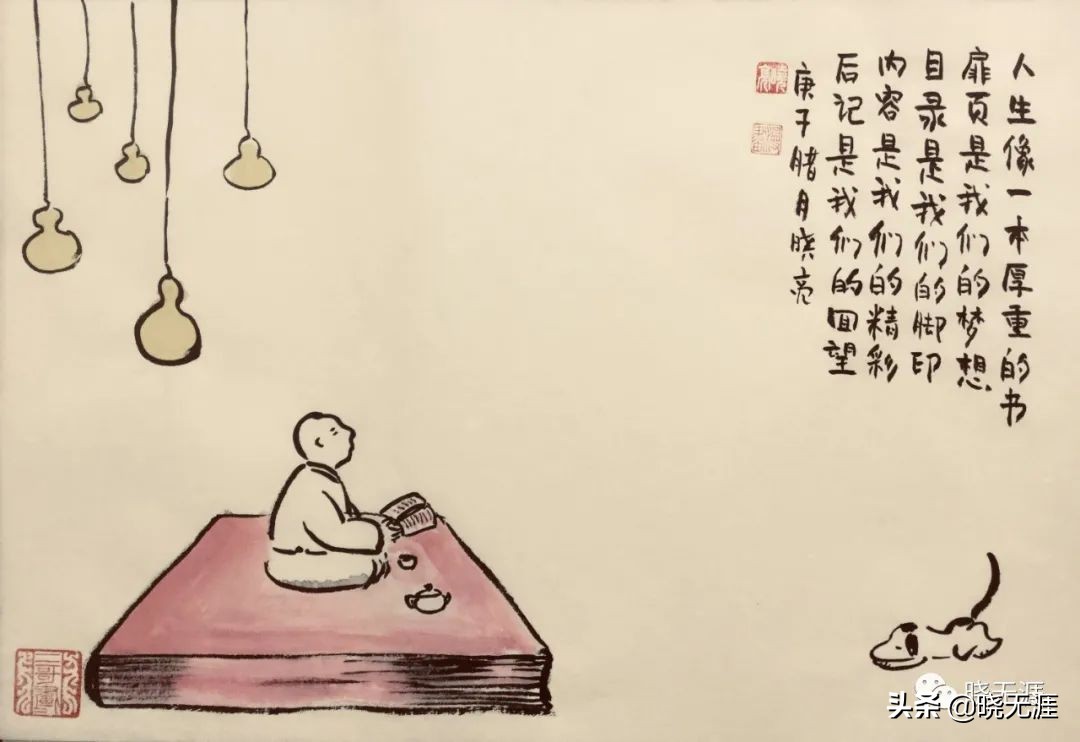 人生像一本厚重的书
扉页是我们的梦想
目录是我们的脚印
内容是我们的精彩
后记是我们的回望
庚子腊月晓亮
晓无涯
头条 @晓无涯